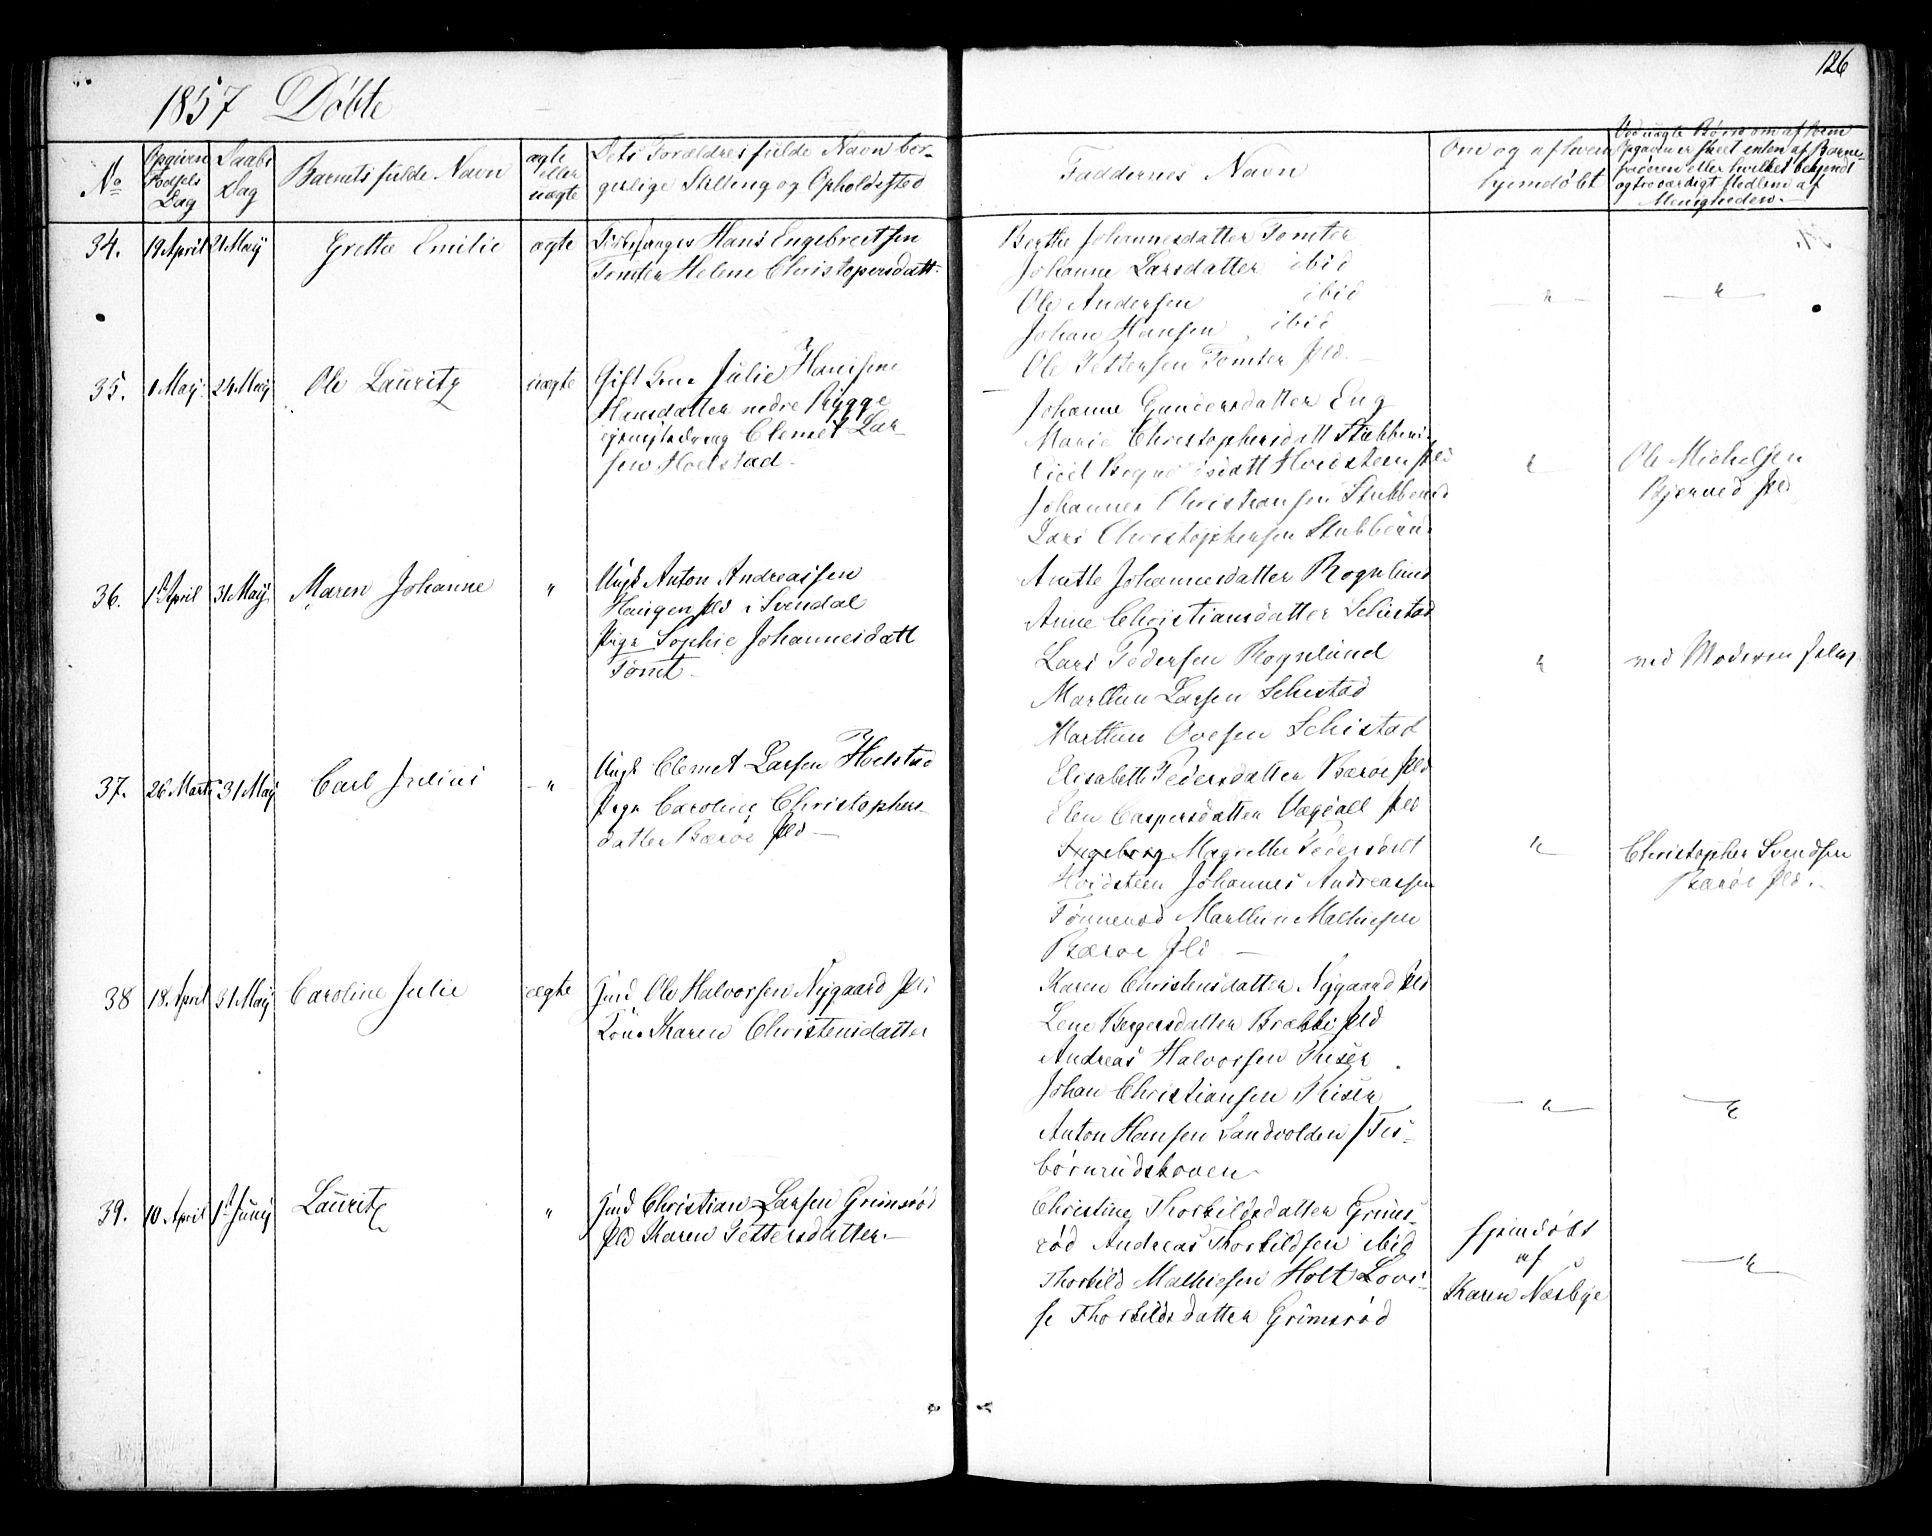 126
1857 Døbte
No
Opgiven Fødsels Dag
Daabs Dag
Barnets fulde Navn
ægte eller uægte
Dets Forældres fulde Navn bor-
gerlige Stilling og Opholdssted
Faddernes Navn
Om og af hvem
hjemdøbt
Ved uægte Børn om af hvem
Opgaven er skeet enten af Barne-
faderen eller hvilket bekjendt
og troværdigt Medlem af
Menigheden.
34. 19 April 21 Maij Grethe Emilie ægte
Hans Engebretsen
Tomter Helene Christophersdatt.
Berthe Johannesdatter Tomter
Johanne Larsdatter ibid
Ole Andersen ibid
Johan Hansen ibid
Ole Pettersen Tomter Pld.
35. 1 Maij 24 Maij Ole Lauritz uægte
Gift Julie
Hansdatter nedre Rygge
Clemet Lar-
sen Holstad
Johanne Gundersdatter Eng
Marie Christophersdatt
Hvidsteen Pld
Johannes Christiansen Stubberud
Lars Christophersen Stubberud
Ole Michelsen
Pld
36. 1st April 31 Maij Maren Johanne "
Ungk Anton Andreassen
Haugen Pld i Svendal
Pige Sophie Johannesdatt
Tomt
Anette Johannesdatter Rognlund
Anne Christiansdatter Schistad
Lars Pedersen Rognlund
Marthin Larsen Schistad
Marthin Ovesen Schistad
ved Moderen selv
37. 26 Marts 31 Maij Carl Julius "
Ungk Clemet Larsen Holstad
Pige Caroline Christophers-
datter Bærøe Pld
Elisabeth Pedersdatter Bærøe Pld
Elen Caspersdatter Vagdall Pld
Ingeborg Magrethe Pedersdatt
Hvidsteen Johannes Andreassen
Tønnerød Marthin Mathiesen
Bærøe Pld
Christopher Svendsen
Bærøe Pld.
38 18 April 31 Maij Caroline Julie ægte
Gmd Ole Halvorsen Nygaard Pld
Kone Karen Christensdatter
Karen Christensdatter Nygaard Pld
Lene Bergersdatter Brække Pld
Andreas Halvorsen Riser
Johan Christiansen Riser
Anton Hansen Sandvolden / Tis-
børnrudskoven
39. 10 April 1st Junij Lauritz "
Gmd Christian Larsen Grimsrød
Pld Karen Pettersdatter.
Christine Thorkildsdatter Grims-
rød Andreas Thorkildsen ibid
Thorkild Mathiesen Holt Lovi-
se Thorkildsdatter Grimsrød
Hjemdøbt
af
Karen Næsbye